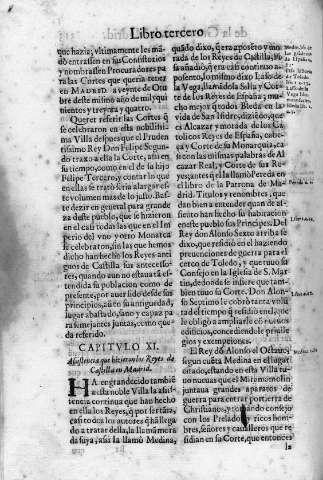 Libro tercero
que hazia; vltimamente les mã
dò entrassen en sus Consistorios
y nombrassen Procuradores pa
ra las Cortes que queria tener
en MADRID a veynte de Otu
bre deste mismo año de mil qui
nientos y treynta y quatro.
Querer referir las Cortes q̃
se celebraron en esta nobilissi
ma Villa despues que el Pruden
tissimo Rey don Felipe Segun
do traxo a ella la Corte, assi en
su tiempo, como en el de su hijo
Felipe Tercero, y contar lo que
en ellas se tratò seria alargar es
te volumen mas de lo justo. Bas
te dezir en general para grande
za deste pueblo, que se hizieron
en el casi todas las que en el Im
perio del vno y otro Monarca
se celebraron, sin las que hemos
dicho han hecho los Reyes anti
guos de Castilla sus antecesso
res, quando aun no estaua tã es
tendida su poblacion como de
presente, por auer sido desde sus
principios, assi en su antiguedad,
lugar abastado, sano y capaz pa
ra semejantes juntas, como que
da referido.
CAPITVLO XI.
Assistencia que hizieron los Reyes de
Castilla en Madrid.
HA engrandecido tambiẽ
esta noble Villa la assis
tencia continua que han hecho
en ella los Reyes, q̃ por ser tãta,
casi todos los autores q̃ hã llega
do a tratar della, la llamã mora
da suya, assi la llamò Medina,
quãdo dixo, q̃ era aposẽto y mo
rada de los Reyes de Castilla, Pi
sa añadiò, q̃ era casi continuo a
posento, lo mismo dixo Laso de
la Vega, llamãdola Silla y Cor
te de los Reyes de España, aun
que mejor q̃ todos Bleda en la
vida de San Isidro, diziẽdo, que
es Alcazar y morada de los Ca
tolicos Reyes de España, cabe
ça y Corte de su Monarquia, ca
si con las mismas palabras de Al
cazar Real, y Corte de sus Re
yes; antes q̃ el la llamò Pereda en
el libro de la Patrona de Ma
drid. Titulos y renombres, que
dan bien a entender quan de as
siento han hecho su habitacion
en este pueblo sus Principes. Del
Rey don Alonso Sexto arriba se
dixo, que residiò en el haziendo
preuenciones de guerra para el
cerco de Toledo, y que tuuo su
Consejo en la Iglesia de S. Mar
tin, de donde se infiere que tam
bien tuuo su Corte. Don Alon
so Septimo le cobrò tanta volũ
tad del tiempo q̃ residiò enel, que
le obligò a ampliarle cõ muchos
dones, concediendole priuile
gios y exempciones.
El Rey dõ Alonso Octauo,
segun cuẽta Medina en el lugar
citado, estando en esta Villa tu
uo nueuas que el Miramamolin
juntaua grandes aparatos de
guerra para entrar por tierra de
Christianos, y tomando consejo
con los Prelados y ricos hom
bres, señores y caualleros que re
sidian en su Corte, que entonces
la